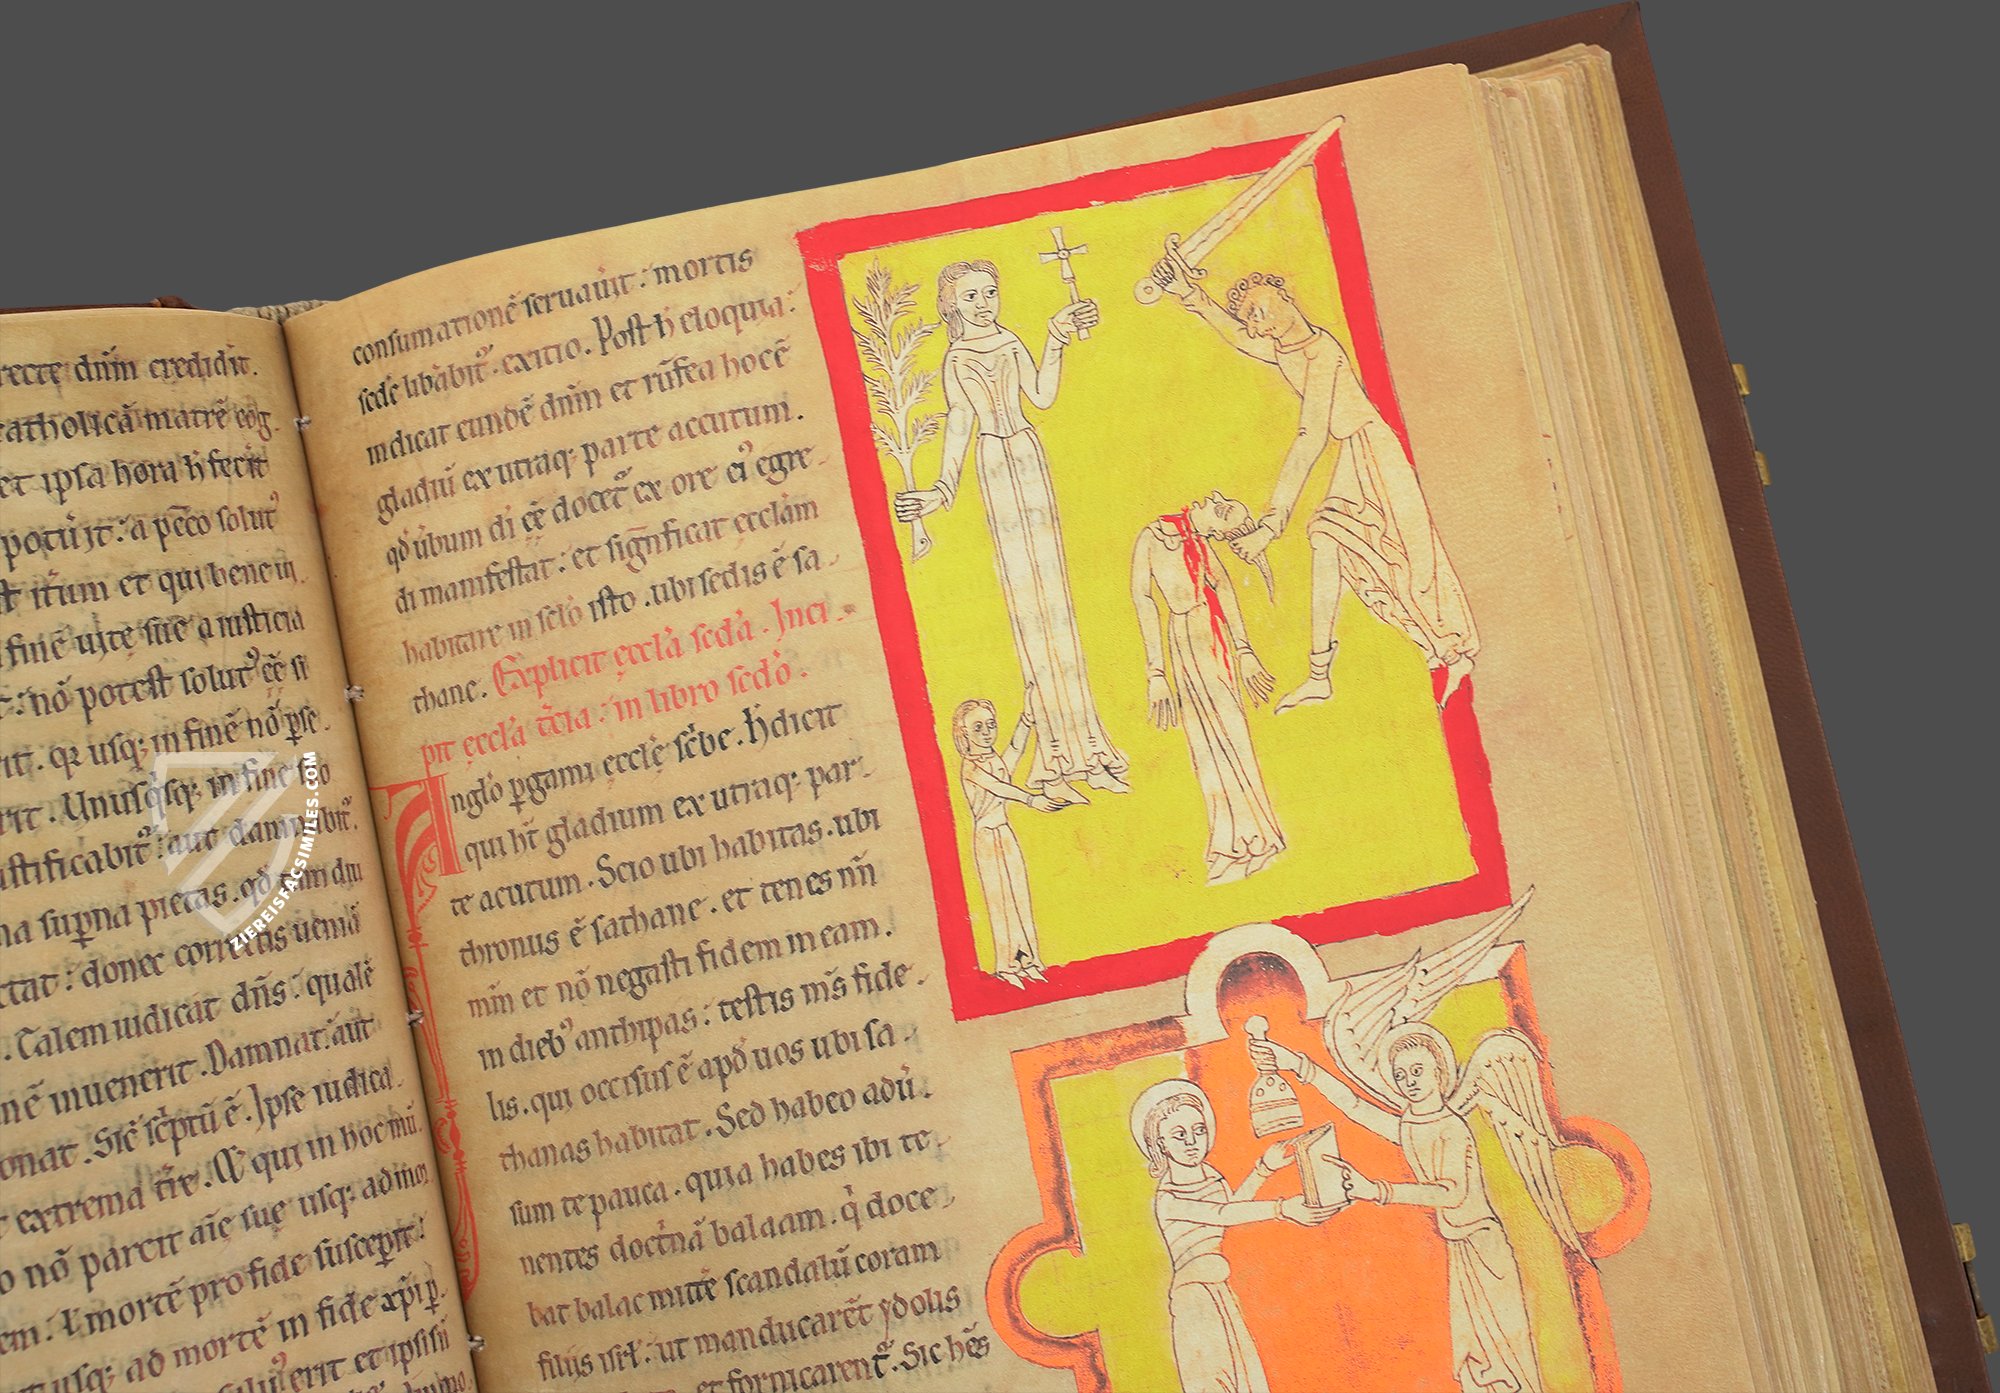 recte dnm̄ credidit.
catholicā matrē cog
et ipsa hora h̄ fecit
potuit: a pēco solut᾽
itūm et qui bene in
finē uitę suę a iusticia
nō potest solut᾽ ēē si
qr̄ usq; in finē nō pse
Unusqsq; in fine suo
iustificabit᾽: aut damnabit᾽.
suprna pietas. qđ tam diu
donec correctis uenia
Talem iudicat dn̄s: qualē
inuenerit. Damnat: aut
Sic scptū ē. Ipse iudica
extrema tr̄e. & qui in hoc mū
nō parcit aīe suę usq; ad mor
mortē pro fide susceperit:
usq; ad mortē in fide xp̄i p
consumationē seruauit: mortis
sedē libabit᾽ exitio. Post h̄ eloquia:
indicat eundē dnm̄ et rūfea hoc ē
gladiū ex utraq; parte accutum.
qđ ubum di ēē docet᾽ ex ore ei᾽ egre
di manifestat: et significat ecclām
habitare in sclō isto. ubi sedis ē sa
thane. Explicit ęccla scđa. Inci
pit ęccla t̄cia: in libro scđo.
Anglō pgami ecclę scbe. H̄ dicit
qui ht̄ gladium ex utraq; par
te acutum. Scio ubi habitas. ubi
thronus ē sathane. et tenes nm̄
min et nō negasti fidem meam.
in dieb᾽ anthipas: testis ms̄ fide
lis. qui occisus ē apđ uos ubi sa
thanas habitat. Sed habeo adū
sum te pauca. quia habes ibi te
nentes doctnā balaam. q̄ doce
bat balac mittē scandalū coram
filiis isrł: ut manducarēt ydolis
et fornicarent᾽. Sic hēs
ZIEREISFACSIMILES.COM